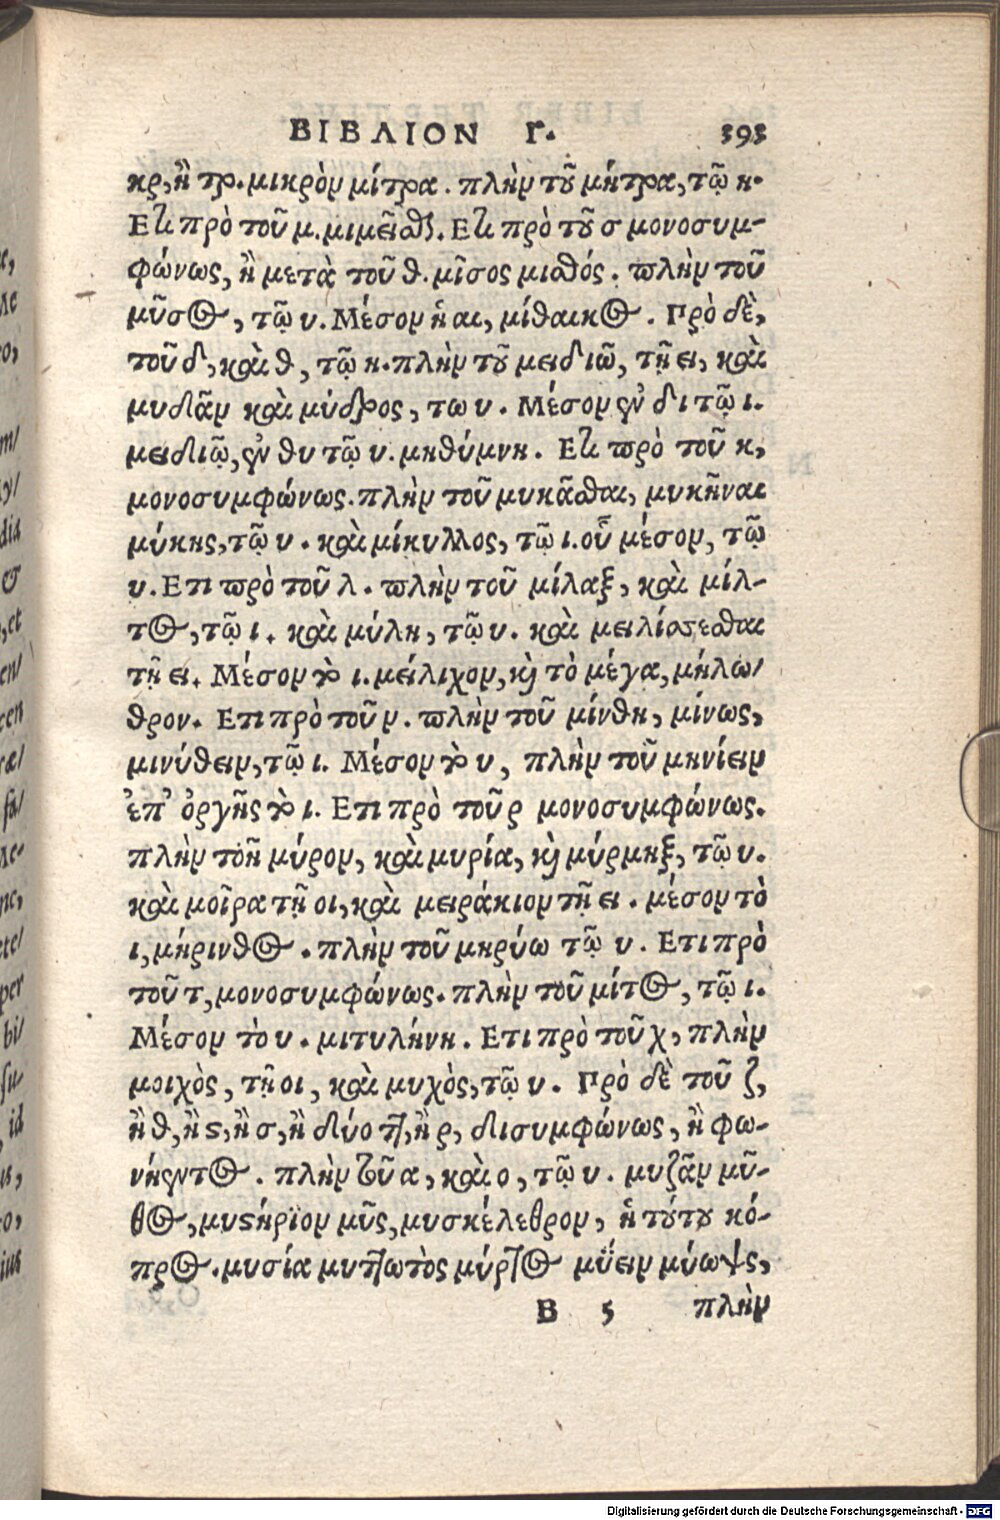 ΒΙΒΛΙΟΝ Γ. 393
κρ, ἢ τρ. μικρὸν μίτρα. πλὴν τοῦ μήτρα, τῷ η.
Ετι πρὸ τοῦ μ. μιμεῖσθαι. Ετι πρὸ τοῦ σ μονοσυμ-
φώνως, ἢ μετὰ τοῦ θ. μῖσος μισθός. πλὴν τοῦ
μῦσος, τῷ υ. Μέσον ἡ αι, μίθαικος. Πρὸ δὲ,
τοῦ δ, καὶ θ, τῷ η. πλὴν τοῦ μειδιῶ, τῇ ει, καὶ
μυδιᾶν καὶ μύδρος, τω υ. Μέσον ἐν δι τῷ ι.
μειδιῶ, ἐν θυ τῷ υ. μηθύμνη. Ετι πρὸ τοῦ κ,
μονοσυμφώνως. πλὴν τοῦ μυκᾶσθαι, μυκῆναι
μύκης, τῷ υ. καὶ μίκυλλος, τῷ ι. οὗ μέσον, τῷ
υ. Ετι πρὸ τοῦ λ. πλὴν τοῦ μίλαξ, καὶ μίλ-
τος, τῷ ι. καὶ μύλη, τῷ υ. καὶ μειλίσσεσθαι
τῇ ει. Μέσον τὸ ι. μείλιχον, καὶ τὸ μέγα, μήλω/
θρον. Ετι πρὸ τοῦ ν. πλὴν τοῦ μίνθη, μίνως,
μινύθειν, τῷ ι. Μέσον τὸ υ, πλὴν τοῦ μηνίειν
ἐπ' ὀργῆς τὸ ι. Ετι πρὸ τοῦ ρ μονοσυμφώνως.
πλὴν τοῆ μύρον, καὶ μυρία, καὶ μύρμηξ, τῷ υ.
καὶ μοῖρα τῇ οι, καὶ μειράκιον τῇ ει. μέσον τὸ
ι, μήρινθος. πλὴν τοῦ μηρύω τῷ υ. Ετι πρὸ
τοῦ τ, μονοσυμφώνως. πλὴν τοῦ μίτος, τῷ ι.
Μέσον τὸ υ. μιτυλήνη. Ετι πρὸ τοῦ χ, πλὴν
μοιχὸς, τῇ οι, καὶ μυχὸς, τῷ υ. Πρὸ δὲ τοῦ ζ,
ἢ θ, ἢ ϛ, ἢ σ, ἢ δύο ττ, ἢ ρ, δισυμφώνως, ἢ φω-
νήεντος. πλὴν τοῦ α, καὶ ο, τῷ υ. μυζᾶν μῦ-
θος, μυϛήρϊον μῦς, μυσκέλεθρον, ἡ τούτου κό-
προς. μυσία μυττωτὸς μύρτος μΰειν μύωψς,
Β 5 πλὴν
Digitalisierung gefördert durch die Deutsche Forschungsgemeinschaft - DFG